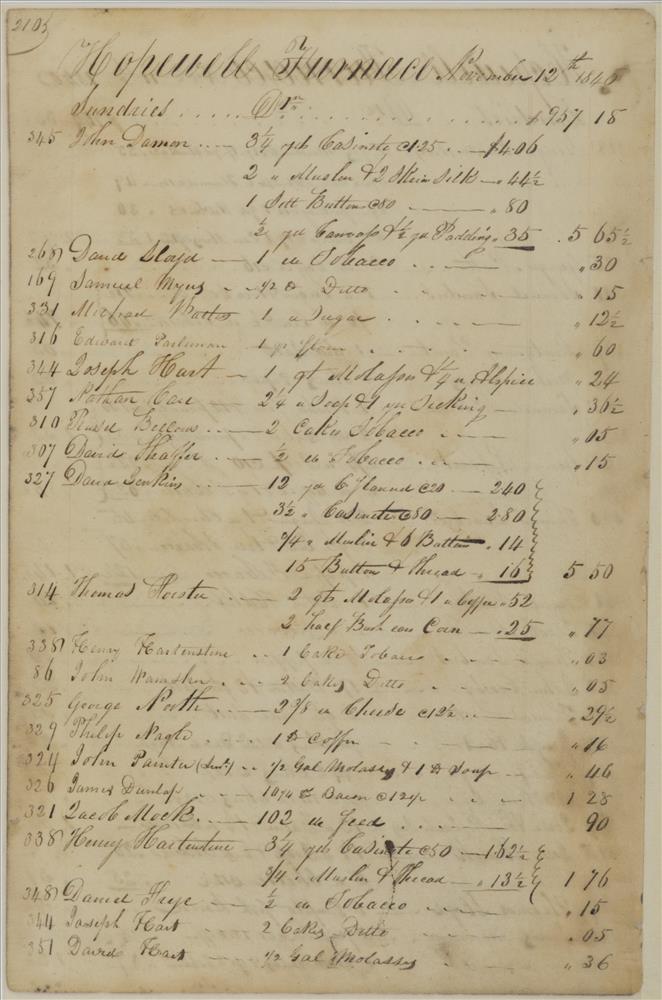 2105
Hopewell Furnace November 12th 1845
Sundries . . . . . Drs . . . . . . $957 18
345 John Damon .... 3¼ yds Casinete c125 ... $4.06
2 " Muslin & 2 Skein Silk — " 44½
1 Sett Buttons c80 — " 80
½ yd Canvass & ½ yd Padding " 35 . 5 65½
268 David Lloyd — 1 lb Tobacco . . — " 30
169 Samuel Myers .. ½ lb Ditto . . — " 15
331 Michael 1 " Sugar . . . — " 12½
316 Edward — 1 " . . . . — " 60
344 Joseph Hart — 1 qt Molasses & ¼ " Alspice " 24
357 Nathan Care ... 2¼ " Soap & 1 yd Ticking — " 36½
310 Bellows .... 2 Cakes Tobacco . . — " 05
307 David Shaffer .. — ½ lb Tobacco . . — " 15
327 David Jenkins .... — 12 yd C Flannel c20 — 240
3½ " Casinete c80 — 280
¾ " Muslin & 6 Buttons " 14
15 Button & Thread — " 16 5 50
314 Thomas — 2 qts Molasses & 1 " Coffee " 52
2 half Bush ears Corn — " 25 " 77
338 Henry Hartenstine .. 1 Cake Tobacco — " 03
86 John . . . 2 Cakes Ditto . . — " 05
325 George North .. — 2⅜ lb Cheese c12½ .. — " 29½
329 Philip Nagle . . . . 1 lb Coffee — . — " 16
324 John Painter (Senr) .. ½ Gal Molasses & 1 lb Soap — " 46
326 James Dunlap . . . 10¼ lb Bacon c12½ . . — 1 28
321 Jacob Mock . . — 102 lb feed . . . — 90
338 Henry Hartenstine — 3¼ yds Casinete c50 — 1.62½
¾ " Muslin & Thread — " 13½ 1 76
348 Daniel Frye — ½ lb Tobacco . . . — " 15
344 Joseph Hart .. 2 Cakes Ditto . . . — " 05
351 David Hart . . . ½ Gal Molasses . . — " 36